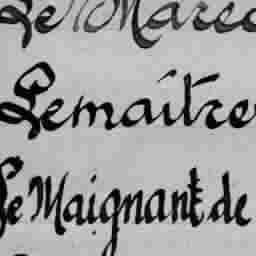 Le Marec
Lemaître
Le Maignant de